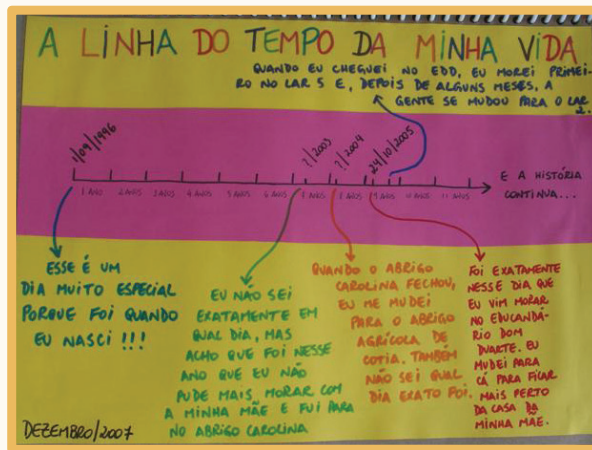 A LINHA DO TEMPO DA MINHA VIDA
QUANDO EU CHEGUEI NO EDD, EU MOREI PRIMEI-
RO NO LAR 5 E, DEPOIS DE ALGUNS MESES, A
GENTE SE MUDOU PARA O LAR
2.
1/09/1996
?/2003
?/2004
24/10/2005
E A HISTÓRIA
CONTINUA...
1 ANO
2 ANOS
3 ANOS
4 ANOS
5 ANOS
6 ANOS
7 ANOS
8 ANOS
9 ANOS
10 ANOS
11 ANOS
ESSE É UM
DIA MUITO ESPECIAL
PORQUE FOI QUANDO
EU NASCI !!!
EU NÃO SEI
EXATAMENTE EM
QUAL DIA, MAS
ACHO QUE FOI NESSE
ANO QUE EU NÃO
PUDE MAIS MORAR COM
A MINHA MÃE E FUI PARA
NO ABRIGO CAROLINA
QUANDO O ABRIGO
CAROLINA FECHOU,
EU ME MUDEI
PARA O ABRIGO
AGRÍCOLA DE
COTIA. TAMBÉM
NÃO SEI QUAL
DIA EXATO FOI.
FOI EXATAMENTE
NESSE DIA QUE
EU VIM MORAR
NO EDUCANDÁ-
RIO DOM
DUARTE. EU
MUDEI PARA
CÁ PARA FICAR
MAIS PERTO
DA CASA DA
MINHA MÃE.
DEZEMBRO/2007